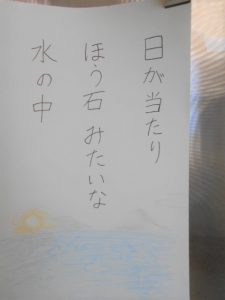 日が当たり
ほう石みたいな
水の中